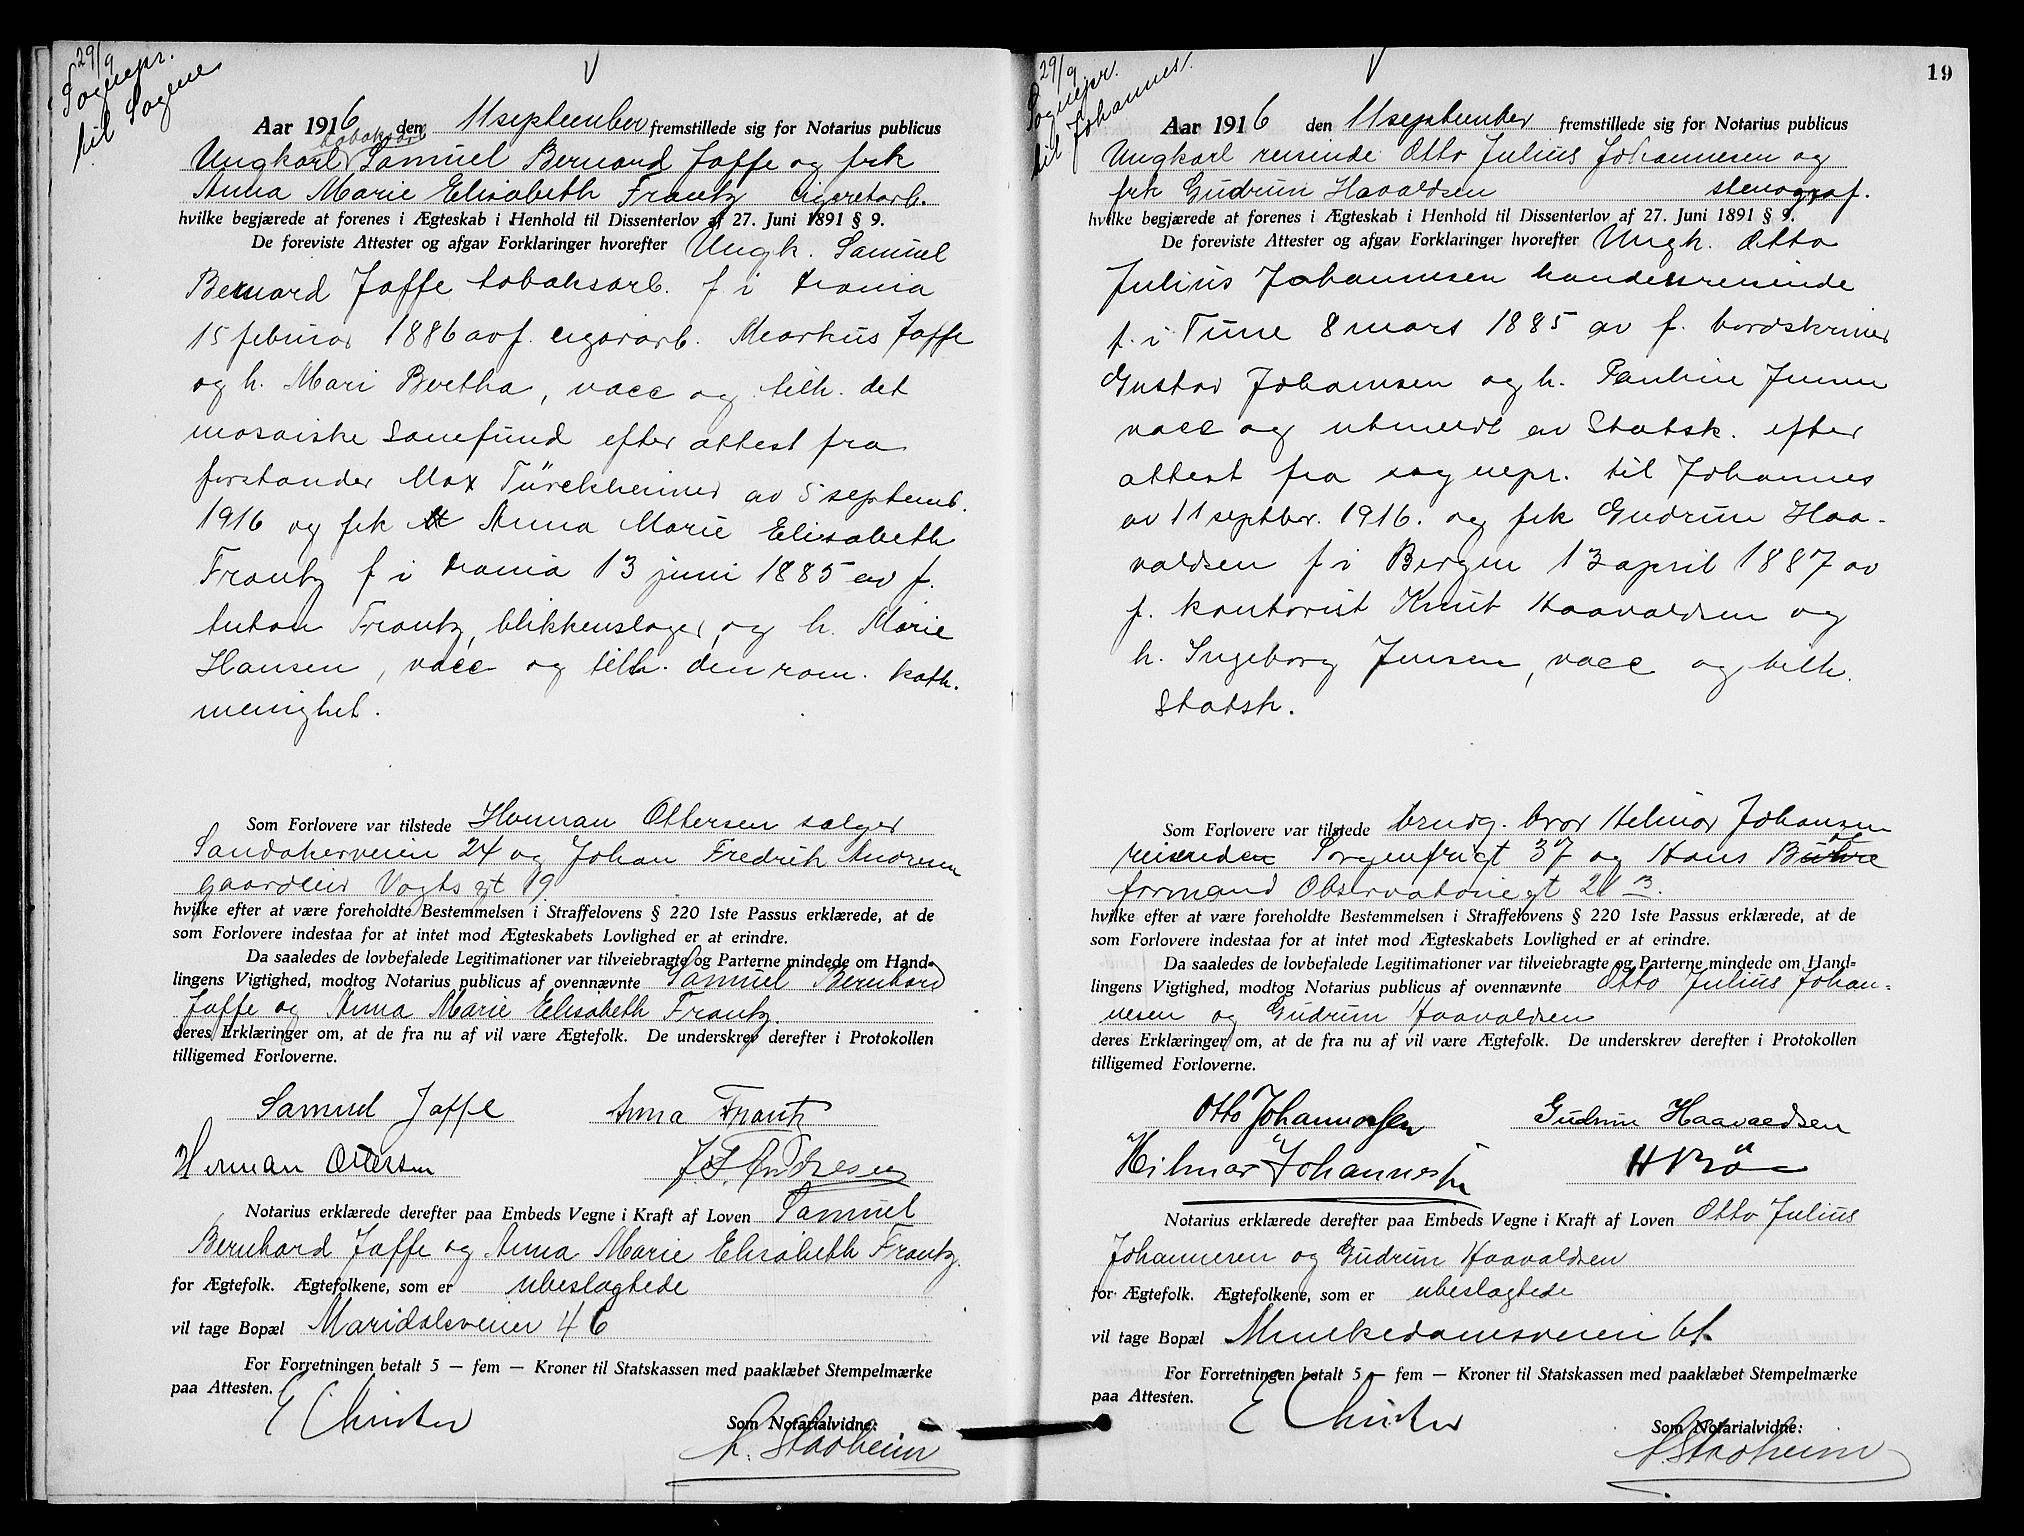 29/9
Sognepr.
til Sagene
Aar 1916 den 11 september fremstillede sig for Notarius publicus
tobaksarb
Ungkarl Samuel Bernard Jaffe og frk
Anna Marie Elisabeth Frantz cigaretarb.
hvilke begjærede at forenes i Ægteskab i Henhold til Dissenterlov af 27. Juni 1891 § 9.
De foreviste Attester og afgav Forklaringer hvorefter Ungk. Samuel
Bernard Jaffe tobaksarb. f i Krania
15 februar 1886 av f. cigararb. Markus Jaffe
og h. Mari Bertha, vacc og tilh. det
mosaiske samfund efter attest fra
forstander Max Türckheimer av 5 septemb.
1916 og frk Anna Marie Elisabeth
Frantz f i Krania 13 juni 1885 av f.
Anton Frantz, blikkenslager, og h. Marie
Hansen, vacc og tilh. den rom. kath.
menighet.
Som Forlovere var tilstede Herman Ottersen sælger
Sandakerveien 24 og Johan Fredrik Andresen
gaardeier Vogts gt 19
hvilke efter at være foreholdte Bestemmelsen i Straffelovens § 220 1ste Passus erklærede, at de
som Forlovere indestaa for at intet mod Ægteskabets Lovlighed er at erindre.
Da saaledes de lovbefalede Legitimationer var tilveiebragte og Parterne mindede om Hand-
lingens Vigtighed, modtog Notarius publicus af ovennævnte Samuel Bernhard
Jaffe og Anna Marie Elisabeth Frantz
deres Erklæringer om, at de fra nu af vil være Ægtefolk. De underskrev derefter i Protokollen
tilligemed Forloverne.
Samuel Jaffe Anna Frantz
Herman Ottersen J. F. Andresen
Notarius erklærede derefter paa Embeds Vegne i Kraft af Loven Samuel
Bernhard Jaffe og Anna Marie Elisabeth Frantz
for Ægtefolk. Ægtefolkene, som er ubeslagtede
vil tage Bopæl Maridalsveien 46
For Forretningen betalt 5 — fem — Kroner til Statskassen med paaklæbet Stempelmærke
paa Attesten.
E Christer
Som Notarialvidne:
Stadheim
19
29/9
Sognepr.
til Johannes.
Aar 1916 den 11 september fremstillede sig for Notarius publicus
Ungkarl reisende Otto Julius Johannesen og
frk Gudrun Haavaldsen stenograf.
hvilke begjærede at forenes i Ægteskab i Henhold til Dissenterlov af 27. Juni 1891 § 9.
De foreviste Attester og afgav Forklaringer hvorefter Ungk. Otto
Julius Johannesen handelsreisende
f. i Tune 8 mars 1885 av f. bordskriver
Gustav Johansen og h. Pauline Jensen
vacc og utmeldt av Statsk. efter
attest fra sognepr. til Johannes
av 11 septbr. 1916. og frk Gudrun Haa-
valdsen f i Bergen 13 april 1887 av
f. kontorist Knut Haavaldsen og
h. Ingeborg Jensen, vacc og tilh.
Statsk.
Som Forlovere var tilstede brudg. bror Hilmar Johansen
reisende Sorgenfrigt 37 og Hans
formand Observatoriegt 2 B.
hvilke efter at være foreholdte Bestemmelsen i Straffelovens § 220 1ste Passus erklærede, at de
som Forlovere indestaa for at intet mod Ægteskabets Lovlighed er at erindre.
Da saaledes de lovbefalede Legitimationer var tilveiebragte og Parterne mindede om Hand-
lingens Vigtighed, modtog Notarius publicus af ovennævnte Otto Julius Johan-
nesen og Gudrun Haavaldsen
deres Erklæringer om, at de fra nu af vil være Ægtefolk. De underskrev derefter i Protokollen
tilligemed Forloverne.
Otto Johannesen Gudrun Haavaldsen
Hilmar Johannesen H Bö
Notarius erklærede derefter paa Embeds Vegne i Kraft af Loven Otto Julius
Johannesen og Gudrun Haavaldsen
for Ægtefolk. Ægtefolkene, som er ubeslagtede
vil tage Bopæl Munkedamsveien
For Forretningen betalt 5 — fem — Kroner til Statskassen med paaklæbet Stempelmærke
paa Attesten.
E Christer
Som Notarialvidne:
Stadheim